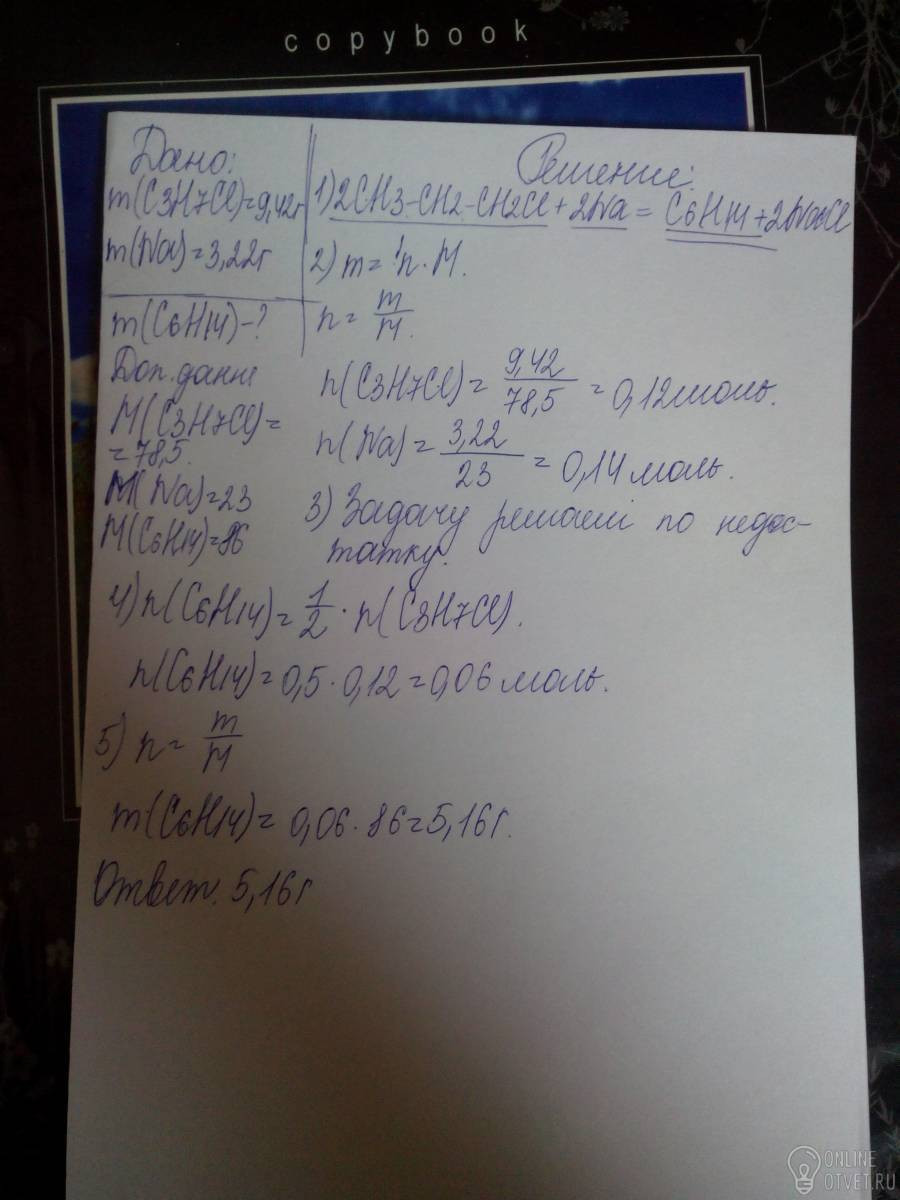 copybook
Дано:
m(C3H7Cl)=9,42г
m(Na)=3,22г
m(C6H14)-?
Доп. данные
M(C3H7Cl)=
=78,5.
M(Na)=23
M(C6H14)=86
Решение:
1) 2CH3-CH2-CH2Cl+2Na=C6H14+2NaCl
2) m=n·M.
n=m/M.
n(C3H7Cl)=9,42/78,5=0,12моль.
n(Na)=3,22/23=0,14моль.
3) Задачу решаем по недос-
татку.
4) n(C6H14)=1/2·n(C3H7Cl).
n(C6H14)=0,5·0,12=0,06моль.
5) n=m/M
m(C6H14)=0,06·86=5,16г.
Ответ. 5,16г
ONLINE
OTVET.RU